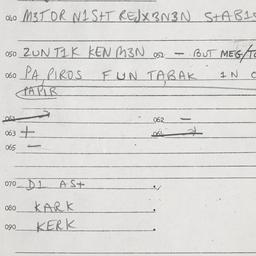 040 M3T OR N1S+T RE/X3N3N S+AB1S
050 ZUNT1K KEN M3N 052 — BUT MEG/TO
060 PA PIROS FUN TABAK 1N C
PAPIR
061 062 —
063 + 064
065 —
070 D1 AS+
080 KARK
090 KERK